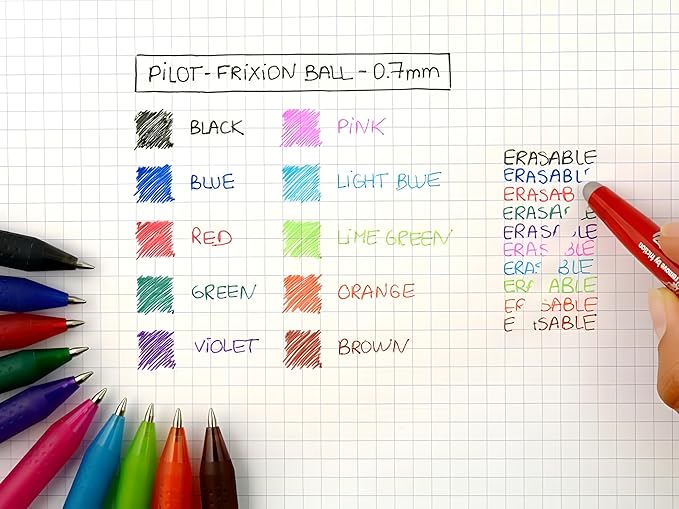 PiLOT-FRiXiON BALL - 0.7mm
BLACK
BLUE
RED
GREEN
ViOLET
PiNK
LiGHT BLUE
LiME GREEN
ORANGE
BROWN
ERASABLE
ERASABL
ERASAB
ERASA LE
ERAS BLE
ERAS BLE
ERAS BLE
ER ABLE
ER SABLE
E SABLE
remove by friction